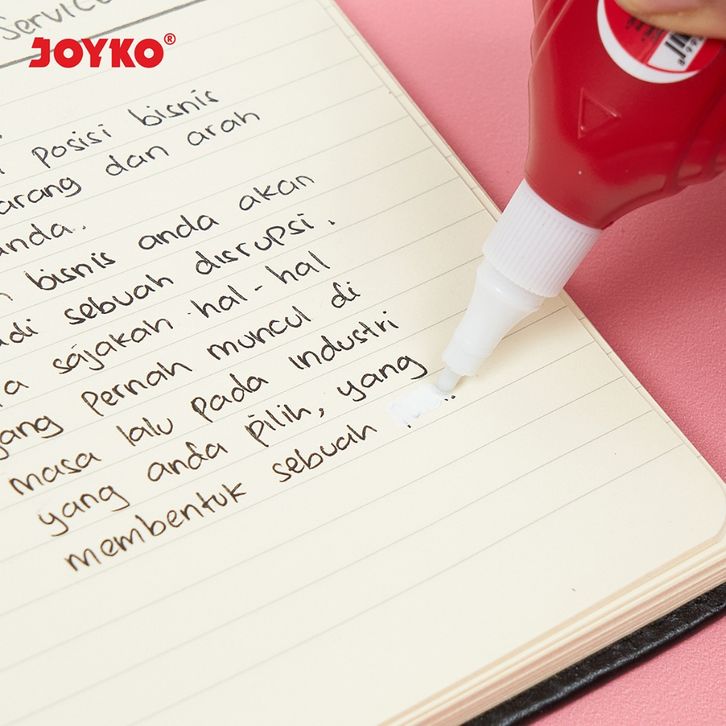 Service
JOYKO®
posisi bisnis
arang dan arah
anda.
bisnis anda akan
di sebuah disrupsi.
sajakan hal-hal
yang pernah muncul di
masa lalu pada industri
yang anda pilih, yang
membentuk sebuah